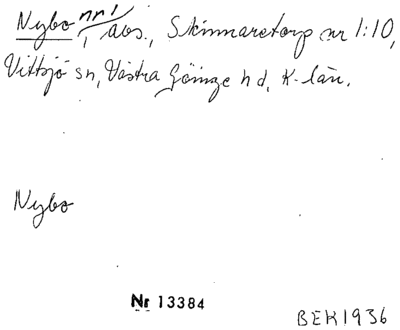 Nybo nr 1, avs., Skinnaretorp nr 1:10,
Vittsjö sn, Västra Göinge hd, K-län.
Nybo
Nr 13384
BEH1936